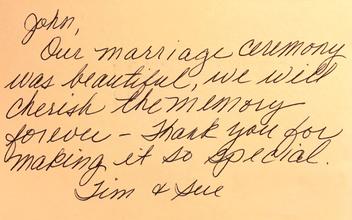 John,
Our marriage ceremony
was beautiful, we will
cherish the memory
forever - Thank you for
making it so special.
Tim & Sue